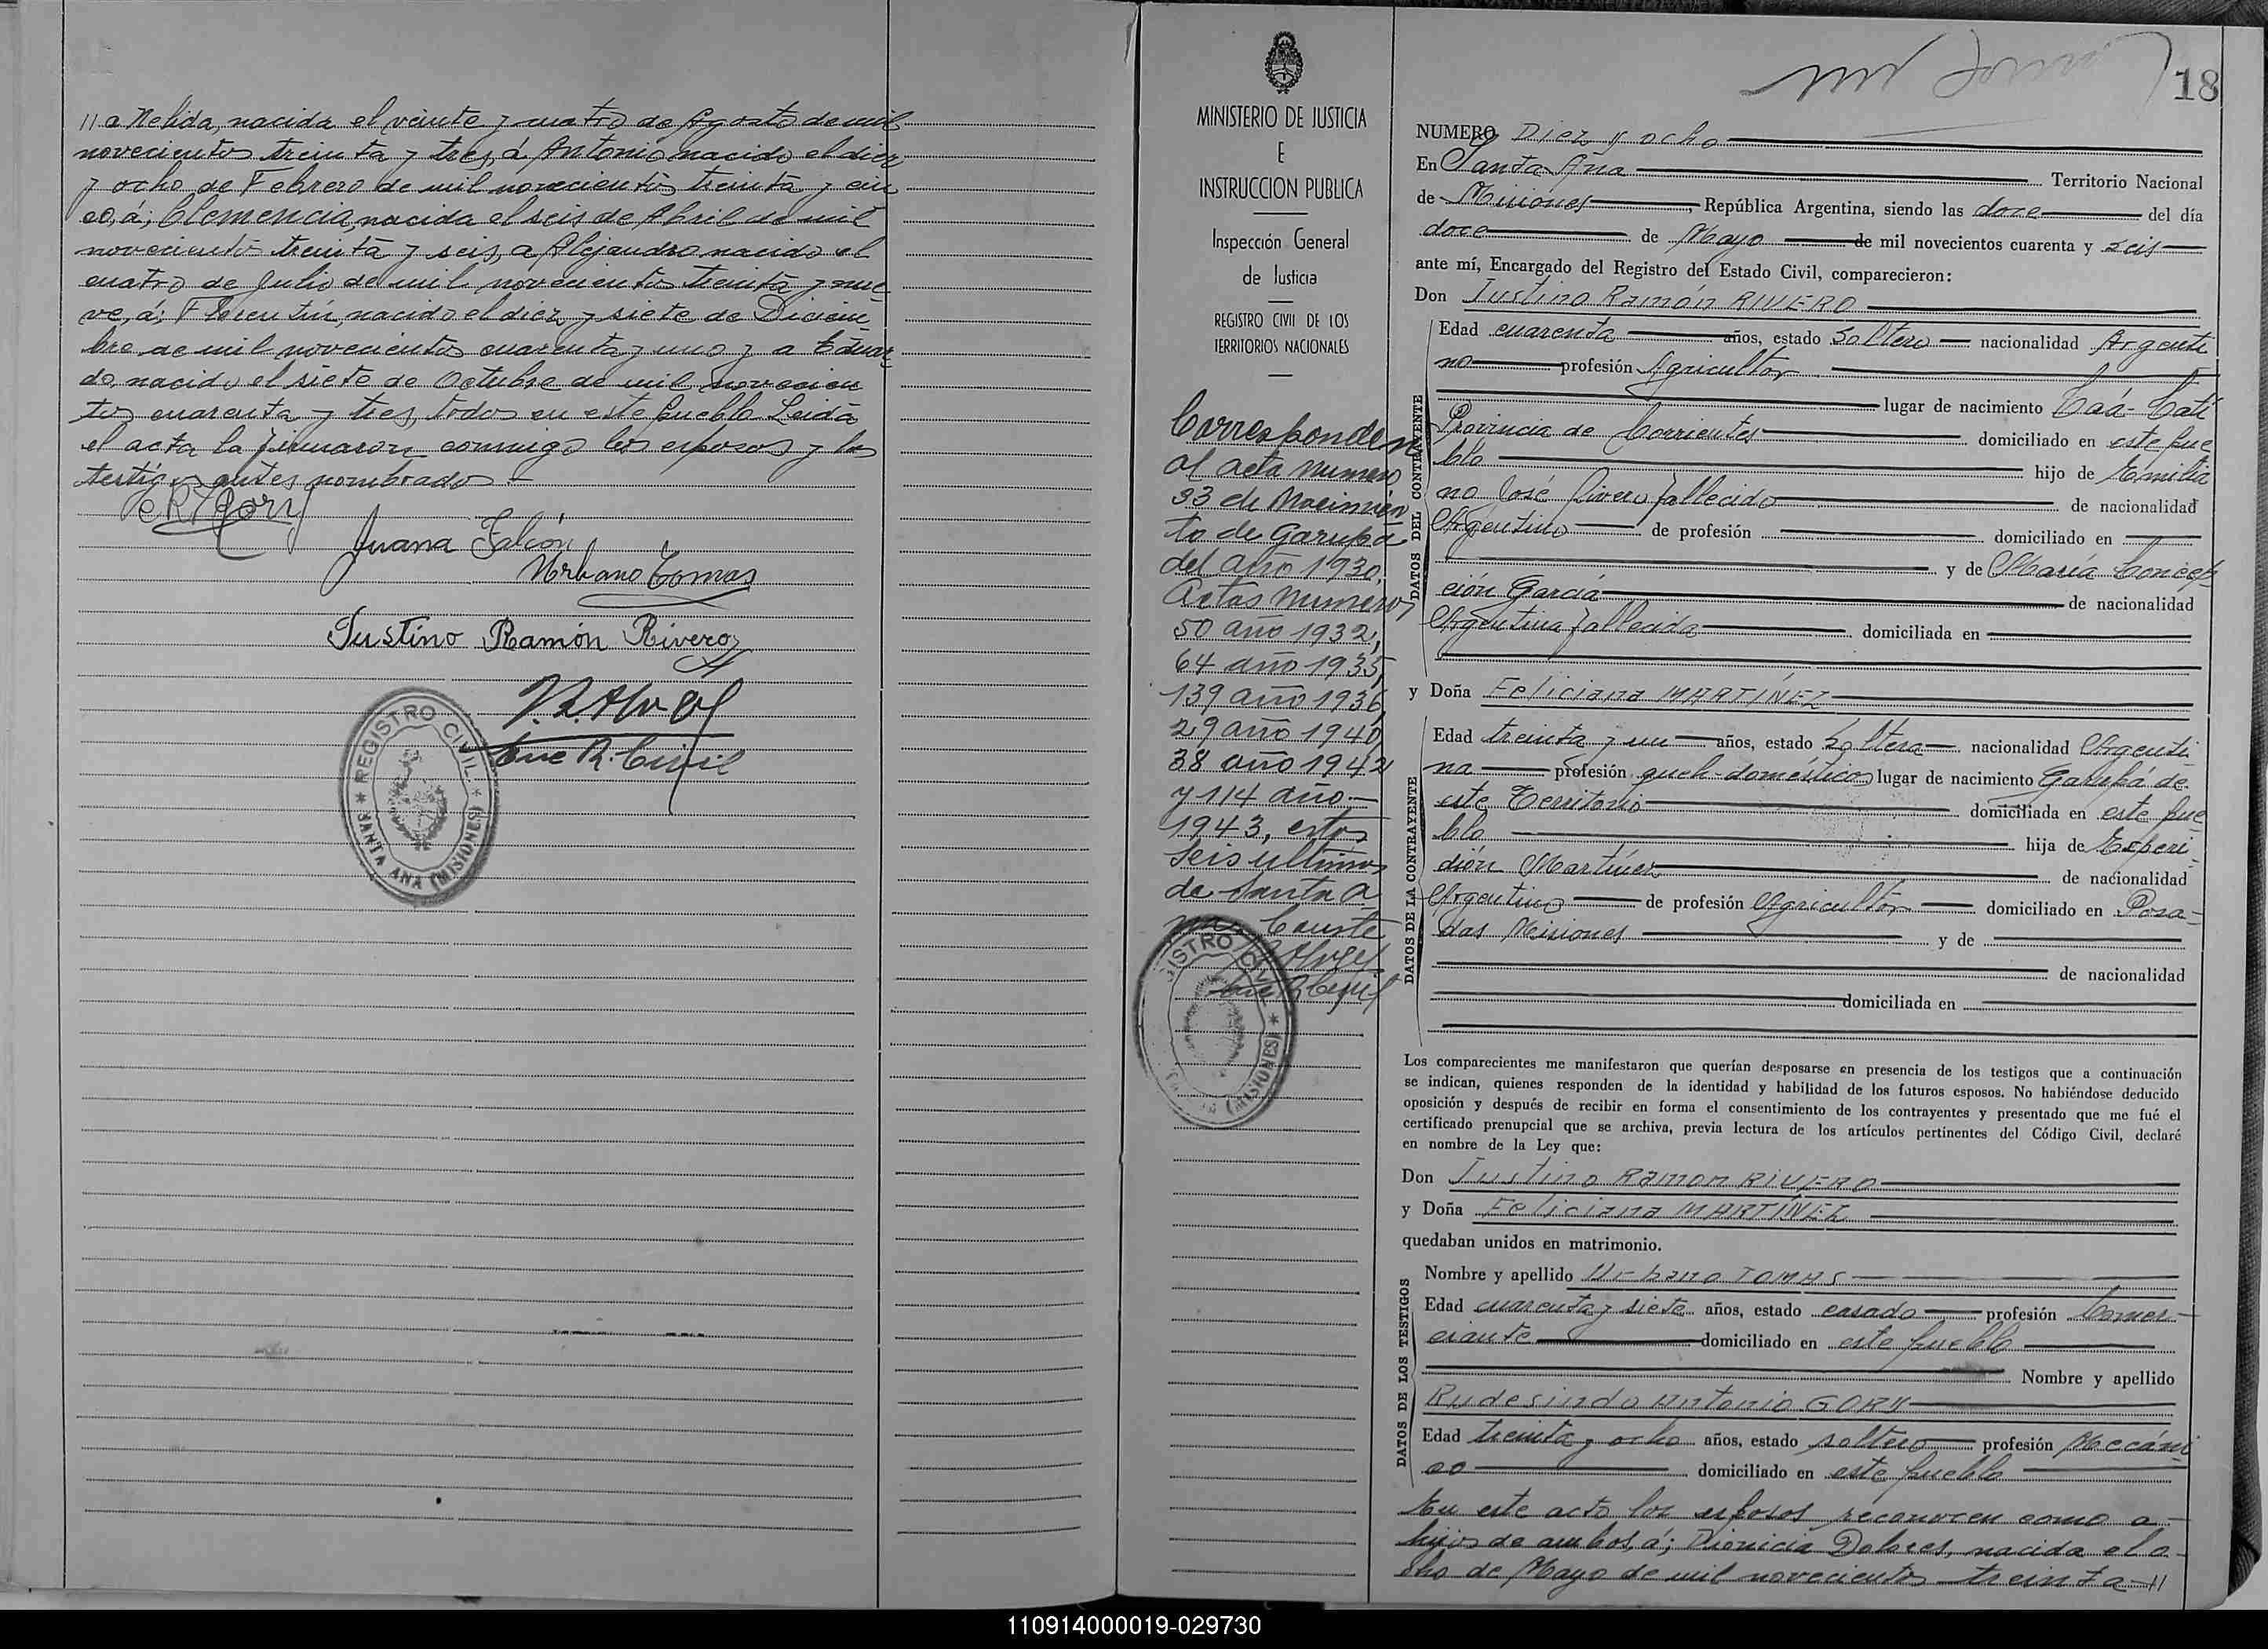 // a Nelida, nacida el veinte y cuatro de Agosto de mil
novecientos treinta y tres, á Antonio nacido el diez
y ocho de Febrero de mil novecientos treinta y cin
co, á; Clemencia nacida el seis de Abril de mil
novecientos treinta y seis, a Alejandro nacido el
cuatro de Julio de mil novecientos treinta y nue
ve, á; Florentín, nacido el diez y siete de Diciem
bre de mil novecientos cuarenta y uno y a Eduar
do, nacido el siete de Octubre de mil novecien
tos cuarenta y tres, todos en este pueblo. Leida
el acta la firmaron conmigo los esposos y los
testigos antes nombrados -
R A Gory
Juana Falcón
Urbano Tomas
Justino Ramón Rivero
Enc R. Civil
* REGISTRO CIVIL * SANTA ANA (MISIONES)
MINISTERIO DE JUSTICIA
E
INSTRUCCION PUBLICA
Inspección General
de Justicia
REGISTRO CIVIL DE LOS
TERRITORIOS NACIONALES
Corresponden
al acta numero
33 de Nacimien
to de Garupá
del año 1930,
Actas numeros
50 año 1932,
64 año 1935,
139 año 1936,
29 año 1940,
38 año 1942
y 114 año -
1943, estos
seis ultimos
de Santa A
na Conste
Enc R Civil
REGISTRO CIVIL * (MISIONES)
18
NUMERO Diez y ocho
En Santa Ana Territorio Nacional
de Misiones, República Argentina, siendo las doce del día
doce de Mayo de mil novecientos cuarenta y seis
ante mí, Encargado del Registro del Estado Civil, comparecieron:
Don Justino Ramón RIVERO
DATOS DEL CONTRAYENTE
Edad cuarenta años, estado Soltero nacionalidad Argenti
no profesión Agricultor
lugar de nacimiento Caá-Catí
Provincia de Corrientes domiciliado en este pue
blo hijo de Emilia
no José Rivero fallecido de nacionalidad
Argentino de profesión domiciliado en
y de María Concep
ción García de nacionalidad
Argentina fallecida domiciliada en
y Doña Feliciana MARTÍNEZ
DATOS DE LA CONTRAYENTE
Edad treinta y un años, estado Soltera nacionalidad Argenti
na profesión queh-domésticos lugar de nacimiento Garupá de
este Territorio domiciliada en este pue
blo hija de Esperi
dión Martínez de nacionalidad
Argentino de profesión Agricultor domiciliado en Posa-
das Misiones y de
de nacionalidad
domiciliada en
Los comparecientes me manifestaron que querían desposarse en presencia de los testigos que a continuación
se indican, quienes responden de la identidad y habilidad de los futuros esposos. No habiéndose deducido
oposición y después de recibir en forma el consentimiento de los contrayentes y presentado que me fué el
certificado prenupcial que se archiva, previa lectura de los artículos pertinentes del Código Civil, declaré
en nombre de la Ley que:
Don Justino Ramon RIVERO
y Doña Feliciana MARTÍNEZ
quedaban unidos en matrimonio.
DATOS DE LOS TESTIGOS
Nombre y apellido Urbano TOMAS
Edad cuarenta y siete años, estado casado profesión Comer-
ciante domiciliado en este pueblo
Nombre y apellido
Rudesindo Antonio GORY
Edad treinta y ocho años, estado soltero profesión Mecáni
co domiciliado en este pueblo
En este acto los esposos reconocen como a-
hijos de ambos, á; Dionicia Dolores, nacida el o-
cho de Mayo de mil novecientos treinta - //
110914000019-029730